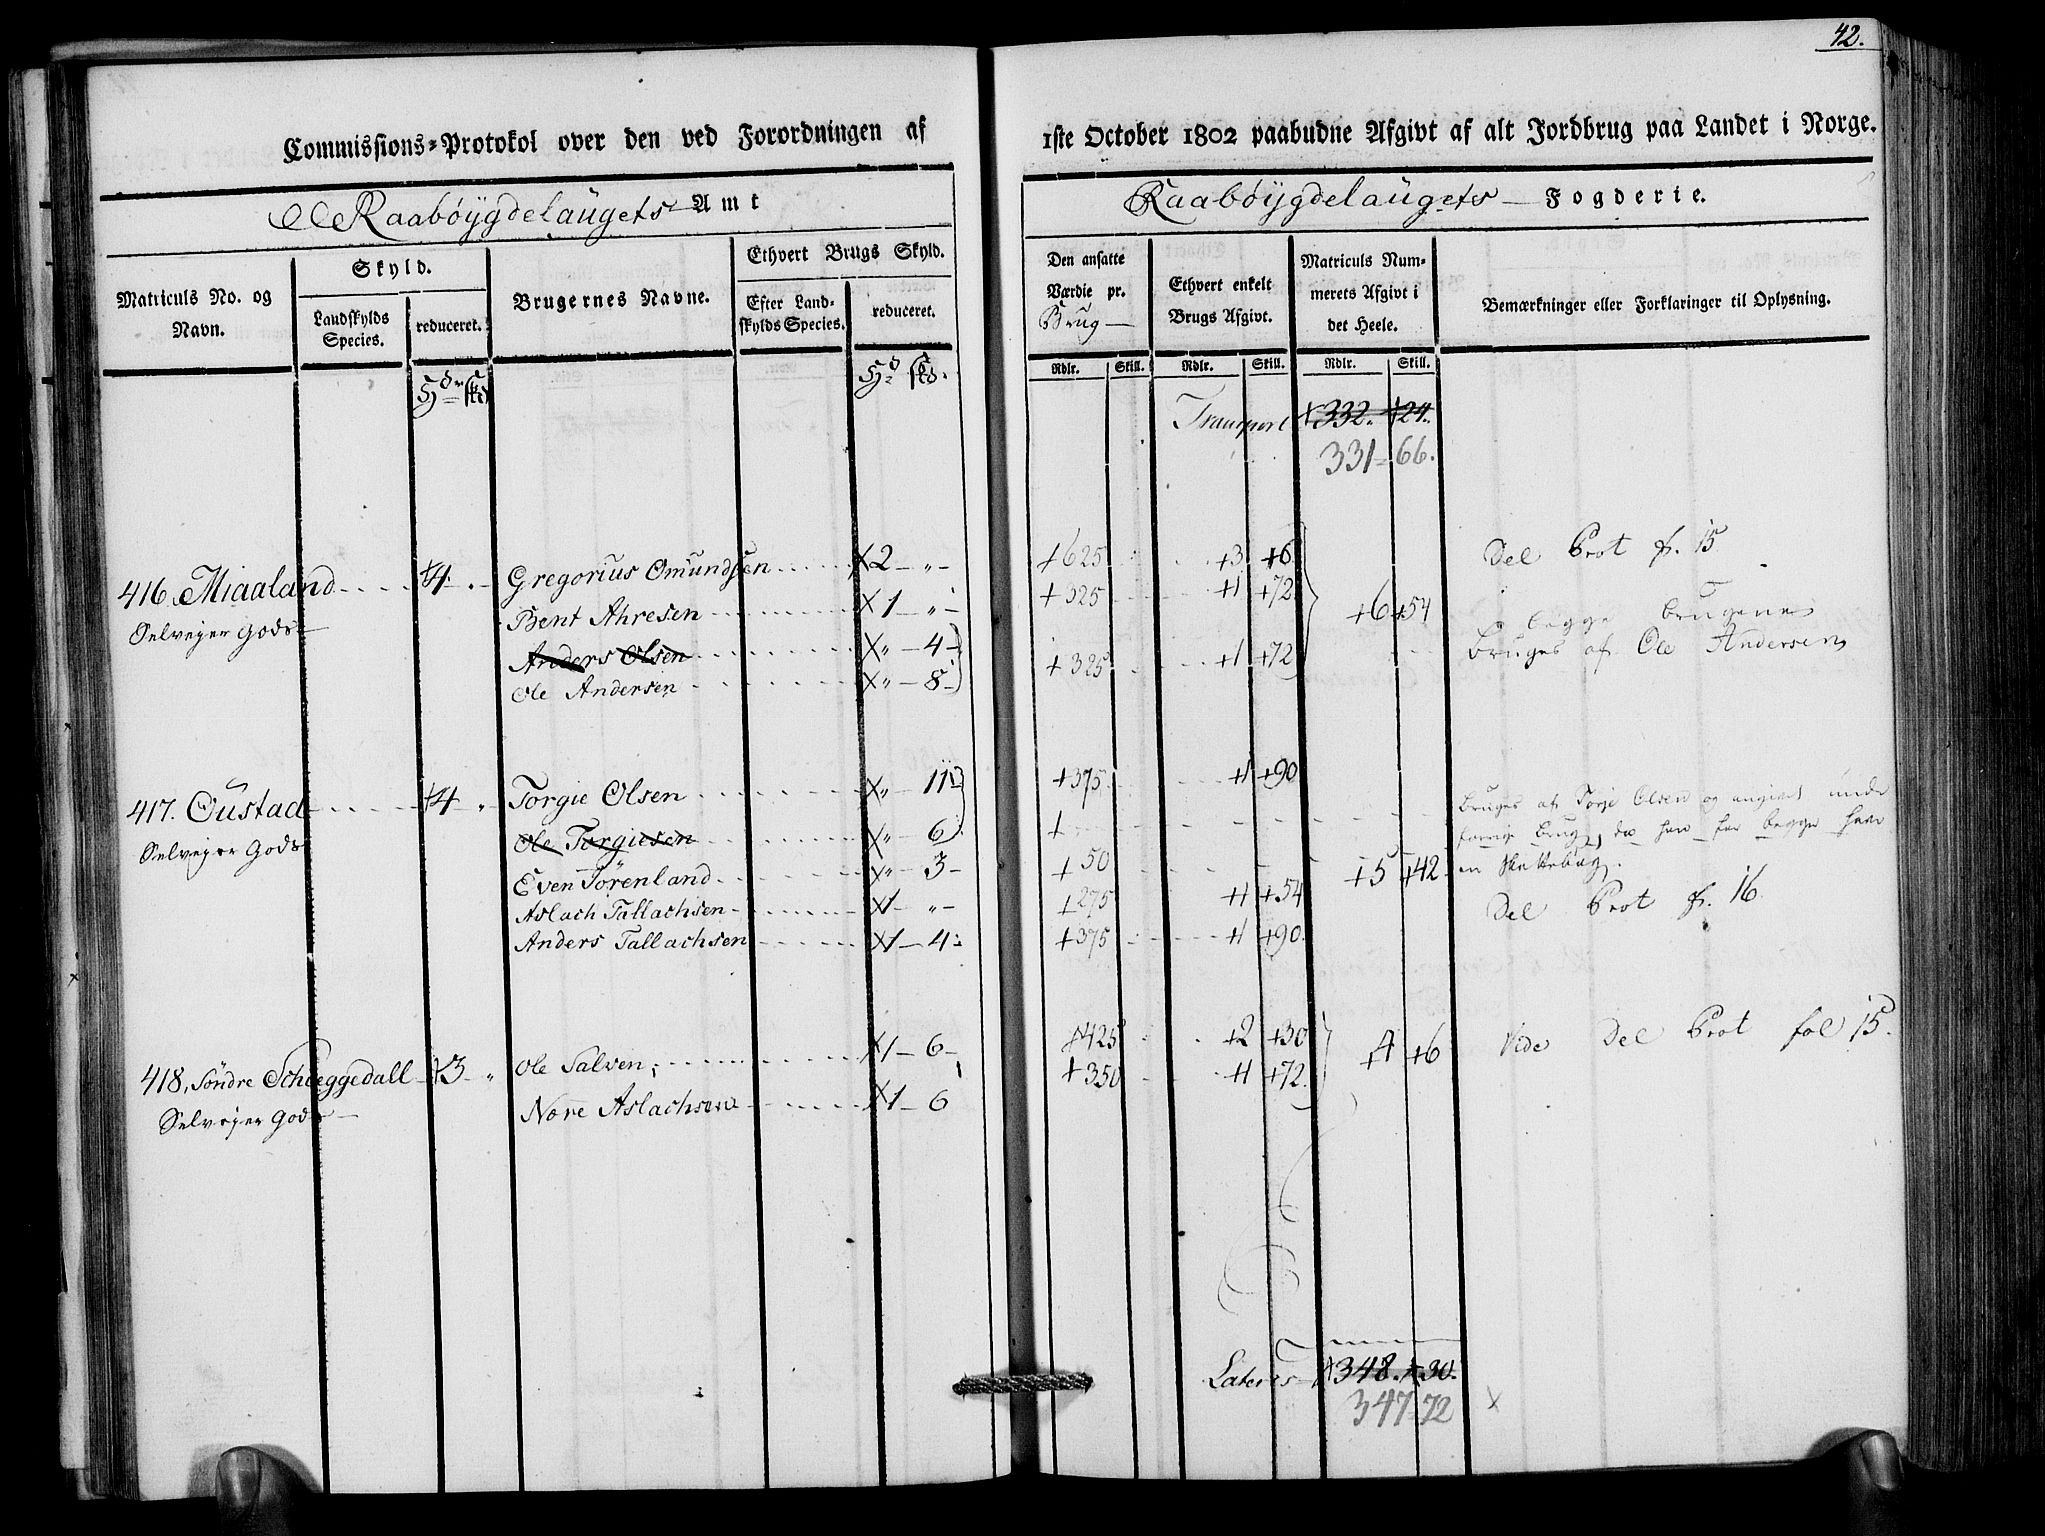 42.
Commissions-Protokol over den ved Forordningen af 1ste October 1802 paabudne Afgivt af alt Jordbrug paa Landet i Norge.
Raabøygdelaugets Amt
Raabøygdelaugets Fogderie.
Matriculs No. og Navn.
Skyld.
Landskylds Species.
reduceret.
Brugernes Navne.
Ethvert Brugs Skyld.
Efter Landskylds Species.
reduceret.
Den ansatte Værdie pr. Brug
Ethvert enkelt Brugs Afgivt.
Matriculs Nummerets Afgivt i det Heele.
Bemærkninger eller Forklaringer til Oplysning.
Rdlr. Skill. Rdlr. Skill. Rdlr. Skill.
Transport 332. 24.
331 = 66.
416. Miaaland 4. Gregorius Omundsen 2 - „ - 625 3 6 Del Prot f. 15
Selvejer Gods
Bent Ahresen 1 - „ - 325 1 72 6 54
Anders Olsen „ - 4 - begge brugene
Ole Andersen „ - 8 - 325 1 72 bruges af Ole Andersen
417. Oustad 4 „ Torgie Olsen „ - 11 375 1 90
Selvejer Gods
Ole Torgiesen „ - 6
bruges af Torje Olsen og angivet unde
forrige brug, da han for begge haver
en Skattebog.
Even Tørenland „ - 3 - 50 5 42
Aslach Tallachsen 1 - „ - 275 1 54 Del Prot f. 16
Anders Tallachsen 1 - 4 375 1 90
418. Søndre Scheggedall 3 „ Ole Salven 1 - 6 - 425 2 30 4 6 Vide Del Prot fol 15.
Selvejer Gods
Nore Aslachsen 1 - 6 350 1 72
Lateris 348. 30.
347 72